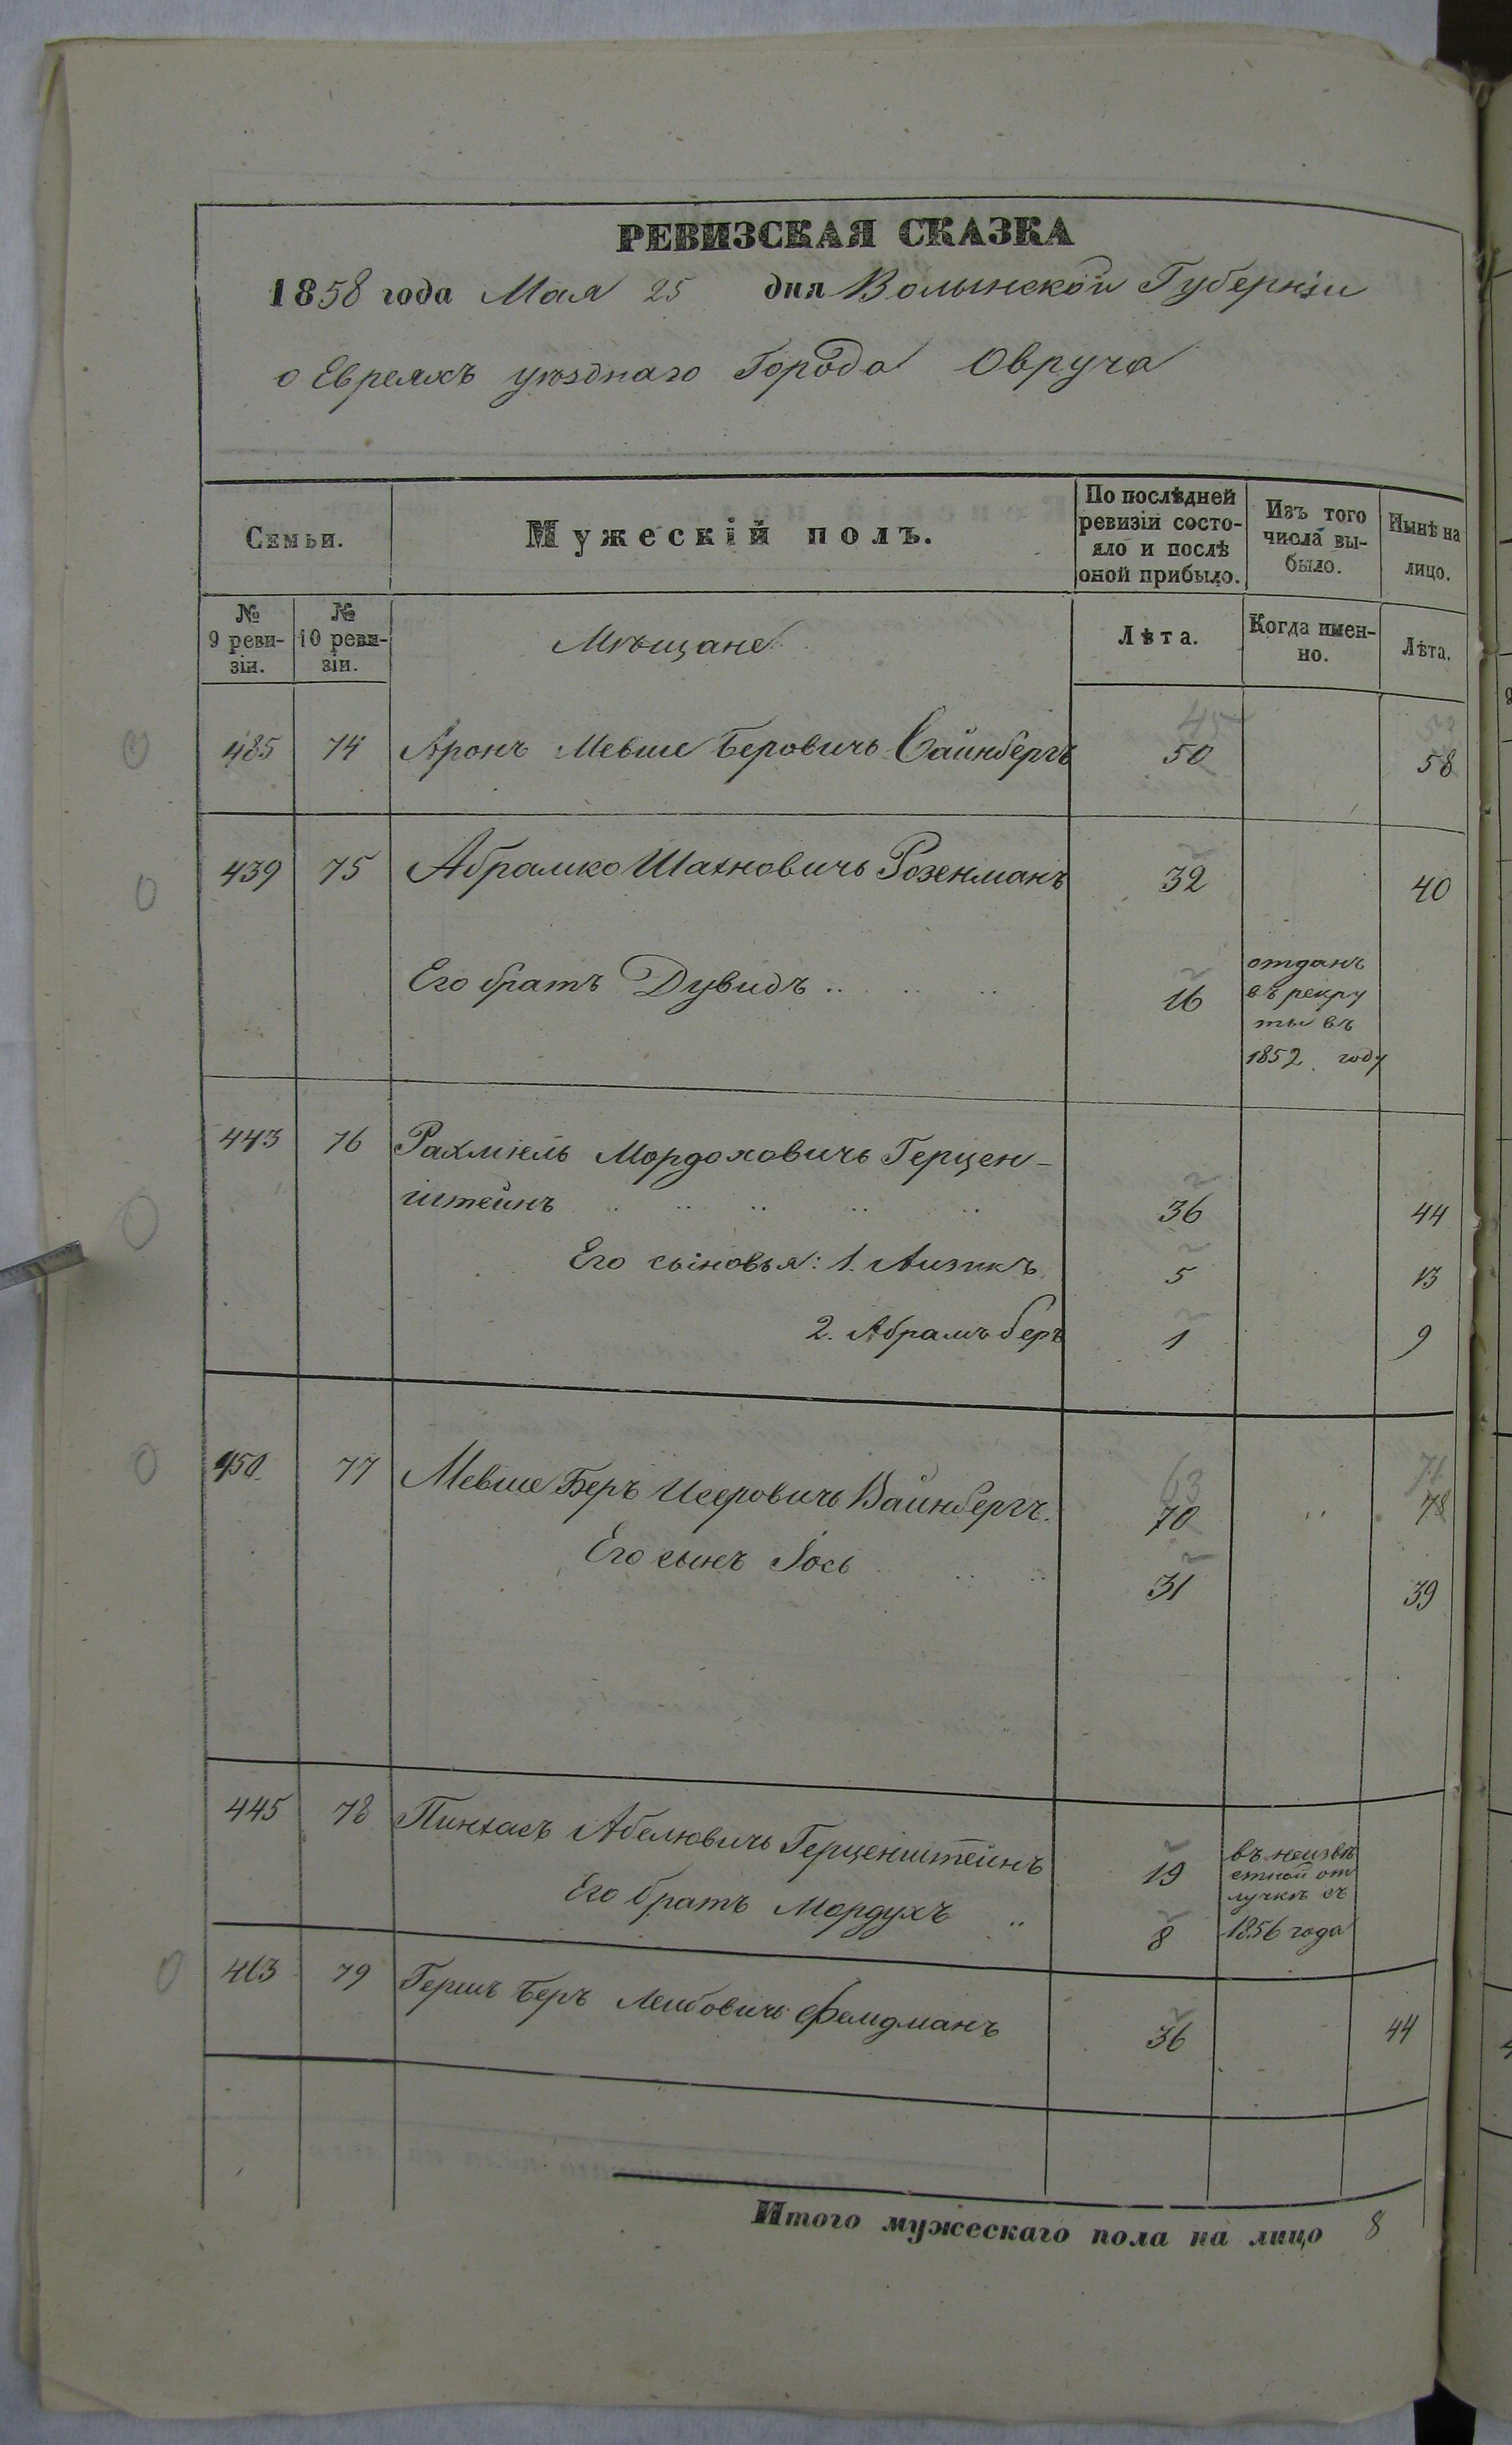 РЕВИЗСКАЯ СКАЗКА
1858 года Мая 25 дня Волынской Губерніи
о Евреяхъ уѣзднаго Города Овруча
Семьи.
Мужескій полъ.
По послѣдней ревизіи состо-
яло и послѣ
оной прибыло.
Изъ того
числа вы-
было.
Нынѣ на
лицо.
№
9 реви-
зіи.
№
10 реви-
зіи.
Мѣщане
Лѣта.
Когда имен-
но.
Лѣта.
45
485 74 Аронъ Мевше Беровичъ Вайнбергъ 50 58
439 75 Абрамко Шахновичь Розенманъ 32 40
Его братъ Дувидъ 16
отданъ
въ рекру
ты въ
1852 году
443 76 Рахміель Мордоховичь Герцен-
штейнъ 36 44
Его сыновья: 1. Аизикъ 5 13
2. Абрамъ беръ 1 9
63 71
450 77 Мевше Беръ Исеровичь Вайнбергъ. 70 78
Его сынъ Іось 31 39
445 78 Пинхасъ Абелювичь Герценштейнъ 19
Его братъ Мордухъ 8
въ неизвѣ
стной от
лучкѣ съ
1856 года
463 79 Гершъ Беръ Лейбовичь Фелдманъ 36 44
Итого мужескаго пола на лицо 8